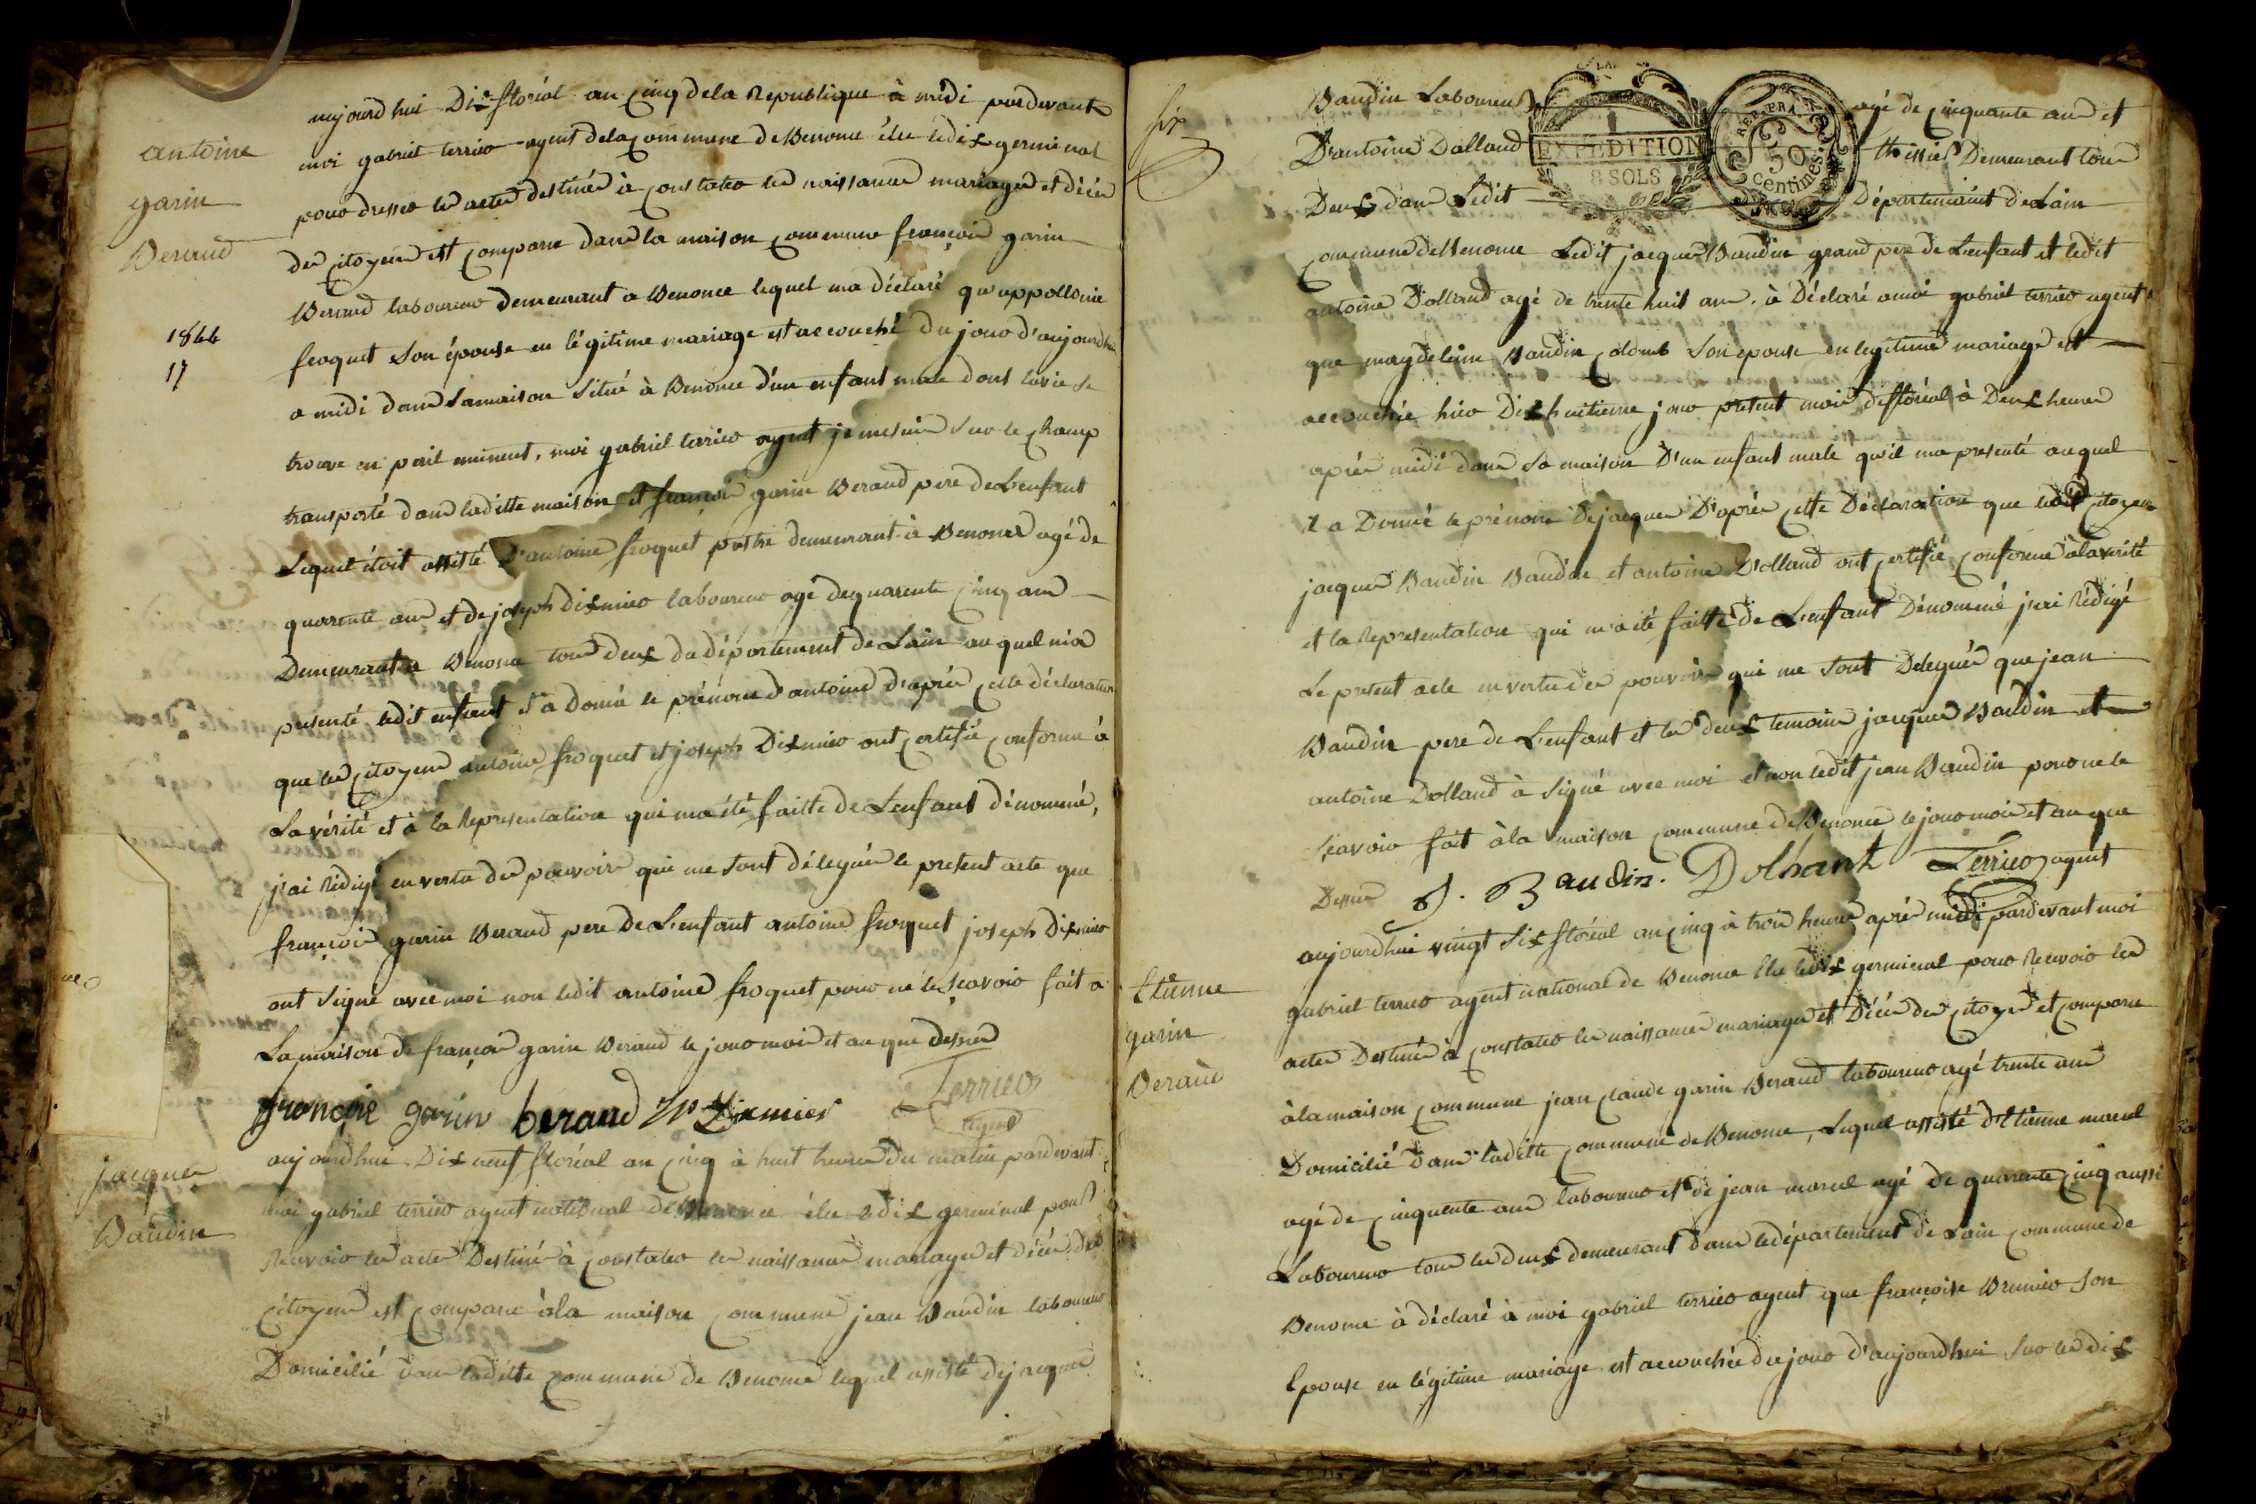 antoine
garin
Beraud
1844
17
aujourd'hui Dix floréal an cinq de la Republique à midi pardevant
moi gabriel terrier agent dela commune de Benonce élu le dix germinal
pour dresser les actes destinés à constater les naissances mariages et décès
des citoyens est comparu dans la maison commune françois garin
Beraud laboureur demeurant a Benonce lequel ma déclaré qu'appollonie
froquet Son épouse en légitime mariage est accouché du jour d'aujourdhui
a midi dans Samaison Situé à Benonce d'un enfant male dont lavie se
trouve en peril eminent, moi gabriel terrier agent je me suis sur le champ
transporté dans laditte maison et françois garin Beraud pere de L'enfant
Lequel étoit assisté D'antoine froquet demeurant à Benonce agé de
quarente ans et de joseph dixmier laboureur agé de quarente cinq ans
Demeurant a Benonce tous deux du département de Lain auquel m'a
presenté ledit enfant et a donné le prénom d'antoine d'après cette déclaration
que les citoyens antoine froquet et joseph Dixmier ont certifié conforme à
La vérité et à la Representation qui ma été faitte de L'enfant dénommé,
j'ai Rédigé en vertu des pouvoirs qui me sont délegués le present acte que
françois garin Beraud pere de L'enfant antoine froquet joseph Dixmier
ont Signé avec moi non ledit antoine froquet pour ne le sçavoir fait a
La maison de françois garin Beraud le jour mois et an que dessus
françois garin beraud Jh Dixmier Terrier
agent
jacques
Baudin
aujourdhui Dix neuf floréal an cinq à huit heures du matin pardevant
moi gabriel terrier agent national de Benonce élu le dix germinal pour
Recevoir les actes Destinés à constater les naissances mariages et décès des
citoyens est comparu àla maison commune jean Baudin laboureur
Domicilié dans laditte commune de Benonce lequel assisté de jacques
six
Baudin Laboureur agé de cinquante ans et
D'antoine Dolland thissier Demeurant tous
Deux dans Ledit Département de Lain
EXPEDITION
8 SOLS
REP. FRA.
50
centimes.
commune de Benonce Ledit jacques Baudin grand pere de L'enfant et ledit
antoine Dolland agé de trente huit ans. à Déclaré a moi gabriel terrier agent
que magdeleine Baudin colomb Son epouse en legitime mariage est
accouchée hier Dix huitieme jour present mois de floréal à Deux heures
après midi dans Sa maison D'un enfant male qu'il ma presenté auquel
il a Donné le prénom de jacques D'après cette Déclaration que les citoyens
jacques Baudin Baudin et antoine Dolland ont certifié conforme àlavérité
et la Representation qui m'a été faitte de L'enfant Dénommé j'ai Rédigé
Le present acte en vertu des pouvoirs qui me sont Delegués que jean
Baudin pere de L'enfant et les deux temoins jacques Baudin et
antoine Dolland à signé avec moi et non ledit jean Baudin pour ne le
sçavoir fait àla maison commune de Benonce le jour mois et an que
Dessus J. Baudin. Dolhant Terrier agent
Etienne
garin
Beraud
aujourdhui vingt Six floréal an cinq à trois heures après midi pardevant moi
gabriel terrier agent national de Benonce élu le dix germinal pour Recevoir les
actes Destinés à constater les naissances mariages et Décès des citoyens est comparu
àlamaison commune jean claude garin Beraud laboureur agé trente ans
Domicilié dans laditte commune de Benonce, Lequel assisté d'Etienne marcel
agé de cinquente ans laboureur et de jean marcel agé de quarente cinq aussi
Laboureur tous les deux demeurant dans ledépartement de Lain commune de
Benonce à déclaré à moi gabriel terrier agent que françoise Brunier son
Epouse en légitime mariage est accouchée du jour d'aujourdhui sur les dix